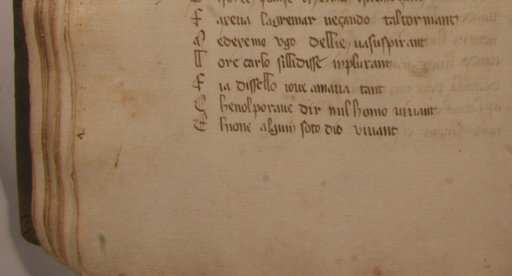 F areua lagremar ueçando tal tormant
M ederemo ugo dellie ua suspirant
ll ore carlo sillidisse inplurant
F ia dissello ioue amaua tant
C henolporaue dir nulhomo uiuant
E lnone alguni soto dio viuant